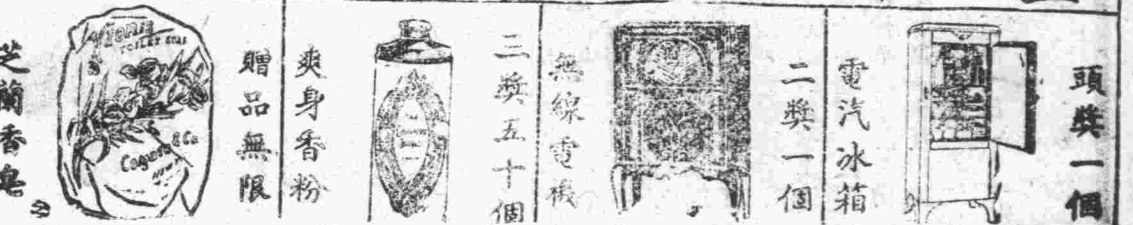 頭獎一個
電汽冰箱
二獎一個
無線電機
三獎五十個
爽身香粉
贈品無限
芝蘭香皂
TOILET SOAP
Colgate & Co.